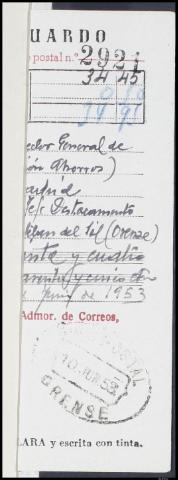 UARDO
postal n.º 2921
34 45
ector General de
ión Ahorros)
adrid
Destacamento
teban del Sil (Orense)
enta y cuatro
arenta y cinco
de 1953
Admor. de Correos,
POSTAL
10 JUN 53
ORENSE
LARA y escrita con tinta.